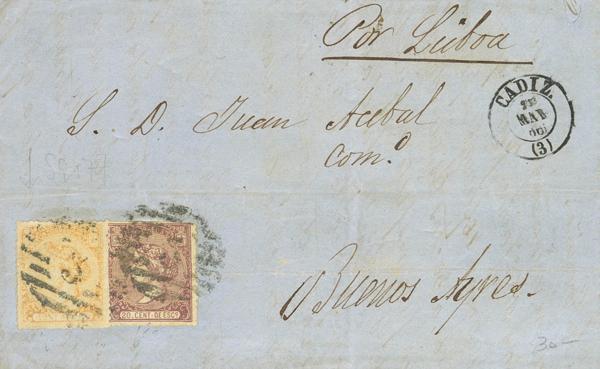 Por Lisboa
CADIZ.
MAR
66
(3)
S. D. Juan Acebal
Com.º
Buenos Ayres.
20 CENT. DE ESC.º
30 —